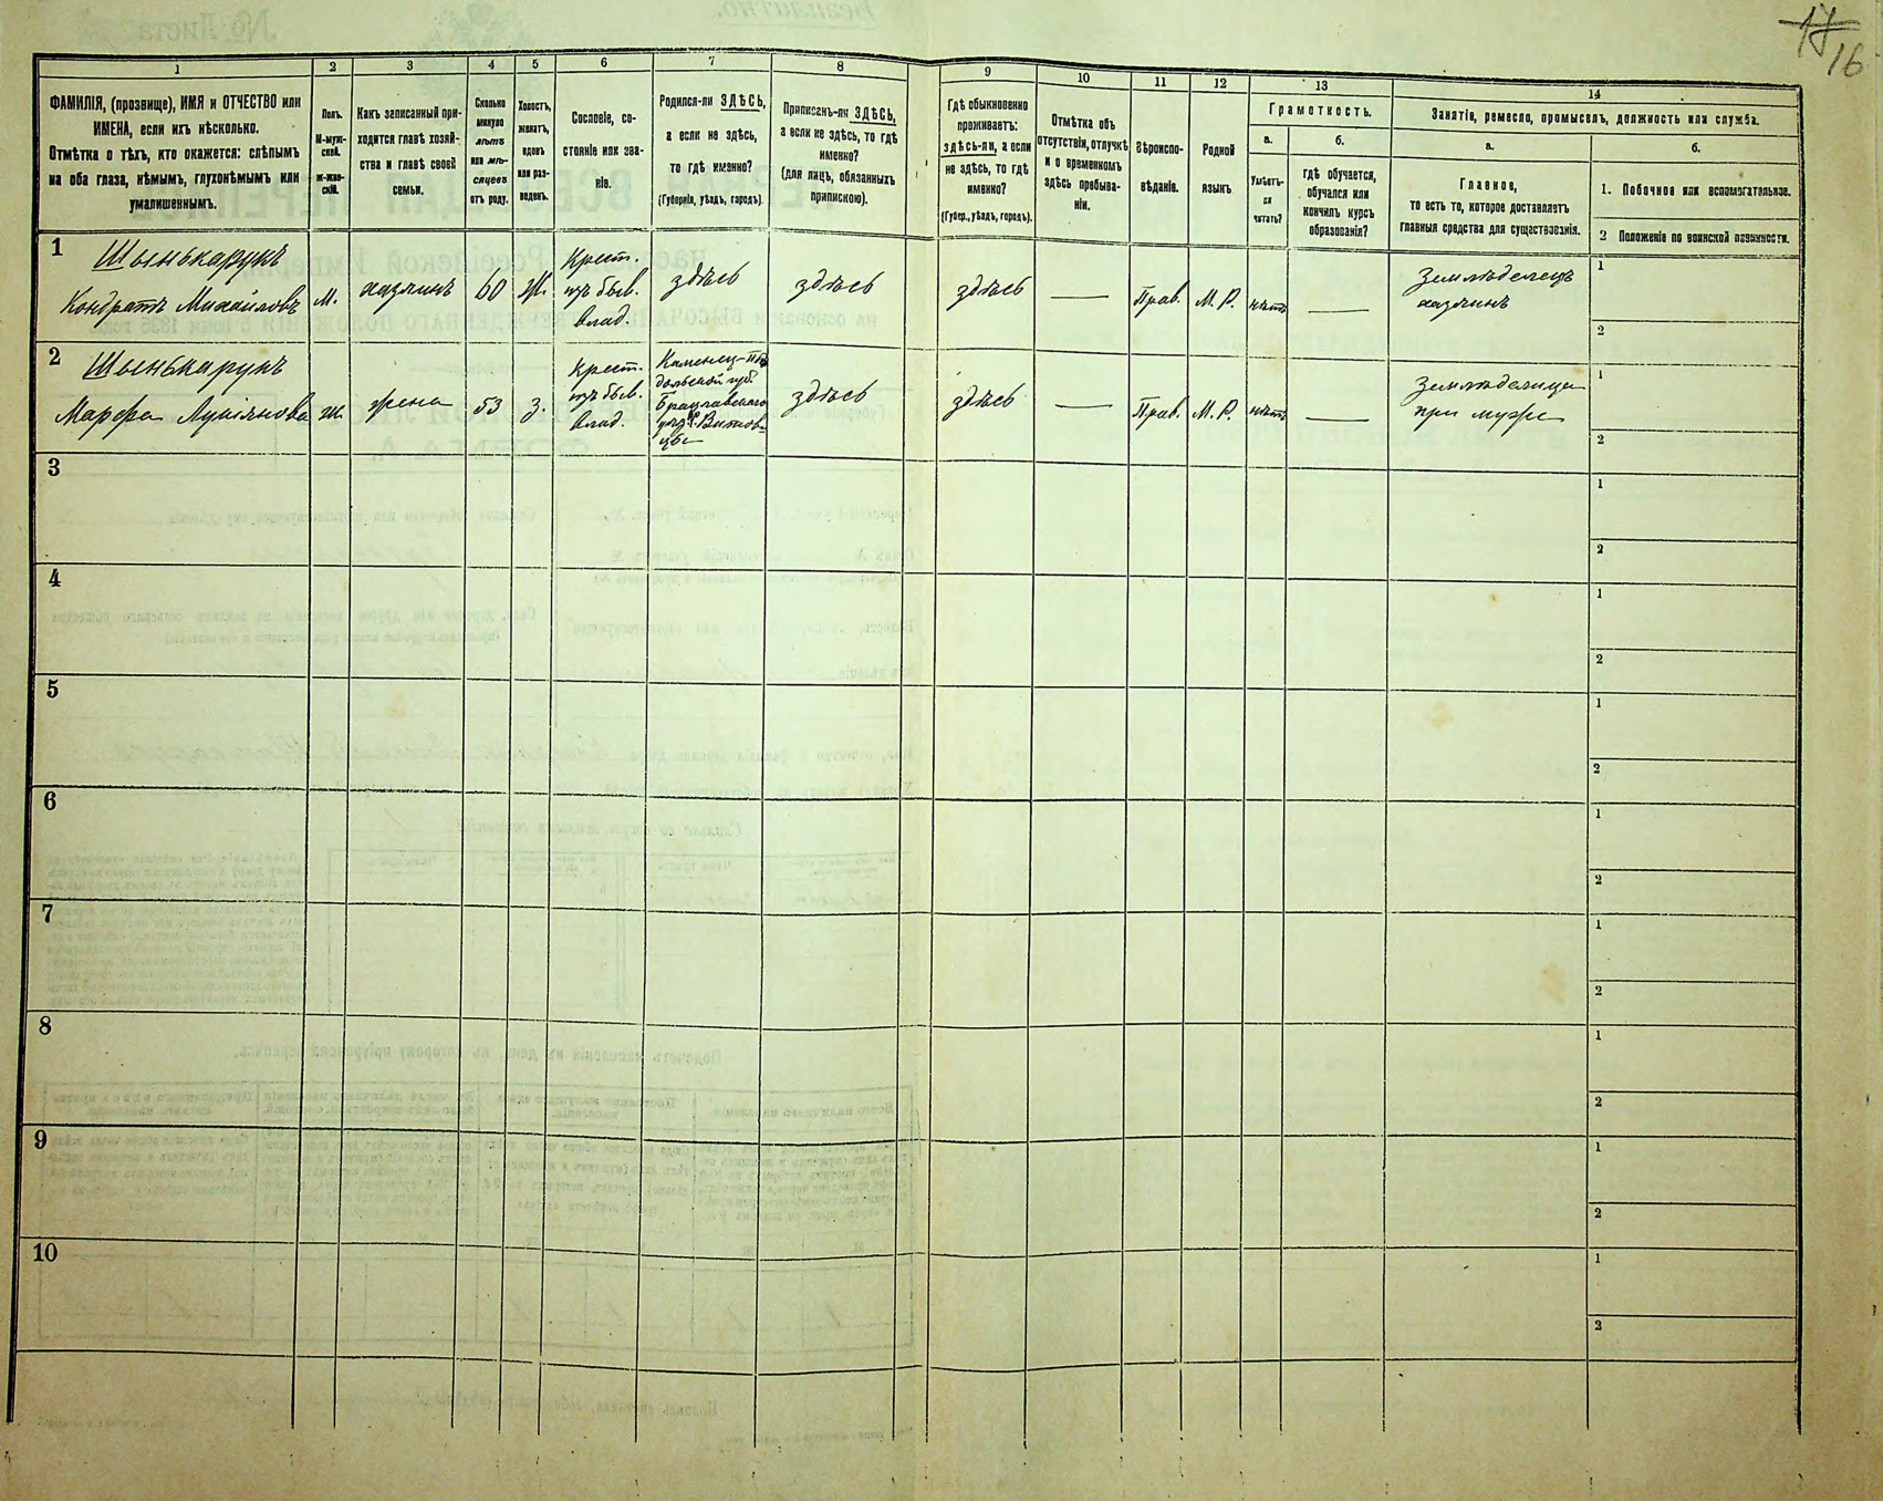 17
16
1
2
3
4
5
6
7
8
9
10
11
12
13
14
ФАМИЛІЯ, (прозвище), ИМЯ и ОТЧЕСТВО или
ИМЕНА, если ихъ нѣсколько.
Отмѣтка о тѣхъ, кто окажется: слѣпымъ
на оба глаза, нѣмымъ, глухонѣмымъ или
умалишеннымъ.
Полъ.
М-муж-
ской.
Ж-жен-
скій.
Какъ записанный при-
ходится главѣ хозяй-
ства и главѣ своей
семьи.
Сколько
минуло
лѣтъ
или мѣ-
сяцевъ
отъ роду.
Холостъ,
женатъ,
вдовъ
или раз-
веденъ.
Сословіе, со-
стояніе или зва-
ніе.
Родился-ли ЗДѢСЬ,
а если не здѣсь,
то гдѣ именно?
(Губернія, уѣздъ, городъ).
Приписанъ-ли ЗДѢСЬ,
а если не здѣсь, то гдѣ
именно?
(для лицъ, обязанныхъ
припискою).
Гдѣ обыкновенно
проживаетъ:
здѣсь-ли, а если
не здѣсь, то гдѣ
именно?
(Губер., уѣздъ, городъ).
Отмѣтка объ
отсутствіи, отлучкѣ
и о временномъ
здѣсь пребыва-
ніи.
Вѣроиспо-
вѣданіе.
Родной
языкъ.
Грамотность.
а.
б.
Умѣетъ-
ли
читать?
гдѣ обучается,
обучался или
кончилъ курсъ
образованія?
Занятіе, ремесло, промыселъ, должность или служба.
а.
б.
Главное,
то есть то, которое доставляетъ
главныя средства для существованія.
1. Побочное или вспомогательное.
2 Положеніе по воинской повинности.
1
Шынькарукъ
Кондратъ Михайловъ
М.
хазяинъ
60
Ж.
Крест.
изъ быв.
влад.
здѣсь
здѣсь
здѣсь
—
Прав.
М. Р.
нѣтъ
—
Земледелецъ
хазяинъ
1
2
2
Шынькарукъ
Марфа Лукіянова
ж.
жена
53
з.
Крест.
изъ быв.
влад.
Каменец-По
дольской губ.
Брацлавскаго
здѣсь
здѣсь
—
Прав.
М. Р.
нѣтъ
—
Земледелица
при мужѣ
1
2
3
1
2
4
1
2
5
1
2
6
1
2
7
1
2
8
1
2
9
1
2
10
1
2